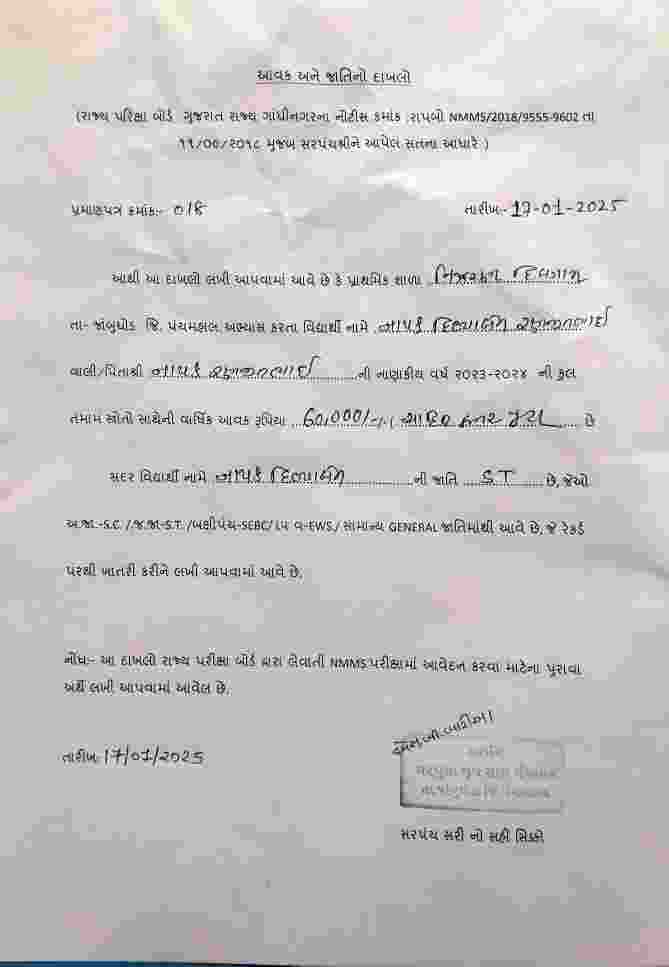 આવક અને જાતિનો દાખલો
(રાજ્ય પરિક્ષા બોર્ડ ગુજરાત રાજ્ય ગાંધીનગરના નોટીસ ક્રમાંક :રાપબો NMMS/2018/9555-9602 તા
૧૧/૦૯/૨૦૧૮ મુજબ સરપંચશ્રીને આપેલ સતના આધારે )
પ્રમાણપત્ર ક્રમાંક:- 018 તારીખ:- 17-01-2025
આથી આ દાખલો લખી આપવામાં આવે છે કે પ્રાથમિક શાળા
તા- જાંબુઘોડ જિ. પંચમહાલ અભ્યાસ કરતા વિદ્યાર્થી નામે નાયક દિવ્યાબેન
વાલી/પિતાશ્રી નાયક ની નાણાકીય વર્ષ ૨૦૨૩-૨૦૨૪ ની કુલ
તમામ સ્રોતો સાથેની વાર્ષિક આવક રૂપિયા 60,000/- હજાર પુરા છે
સદર વિદ્યાર્થી નામે નાયક દિવ્યાબેન ની જાતિ ST છે, જેઓ
અ.જા.-S.C. /.જ.જા-S.T. /બક્ષીપંચ-SEBC/ઇપ વ-EWS./ સામાન્ય GENERAL જાતિમાંથી આવે છે. જે રેકર્ડ
પરથી ખાતરી કરીને લખી આપવામાં આવે છે.
નોંધ:- આ દાખલો રાજ્ય પરીક્ષા બોર્ડ દ્વારા લેવાતી NMMS પરીક્ષામાં આવેદન કરવા માટેના પુરાવા
અર્થે લખી આપવામાં આવેલ છે.
તારીખ: 17/01/2025
સરપંચ સરી નો સહી સિક્કો